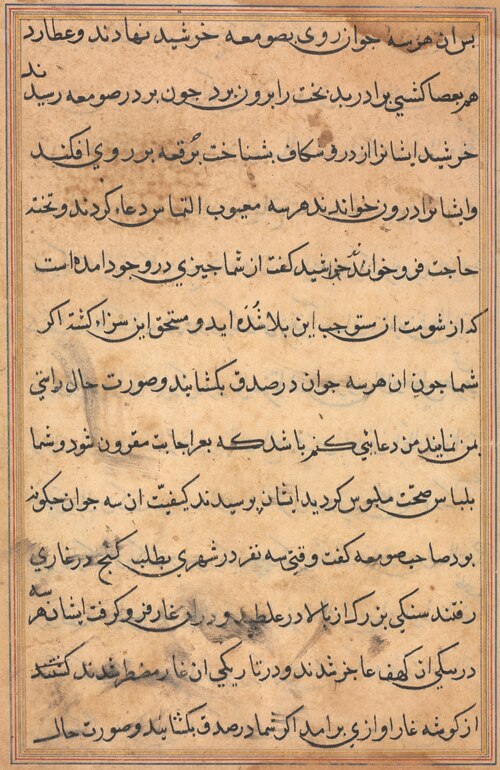 بران هرسه جوان روی بصومعه خرشید نهادند و عطارد
هم بعصا کشیی برادر بد بخت را برون برد جون بر در صومعه رسیدند
خرشید ایشانرا از در و شکاف بشناخت بُرقعه بر روی افکند
وایشانرا درون خواندند هرسه معیوب التماس دعاء کردند و تخته
حاجت فرو خواندند خرشید کفت از شما جیزی در وجود امده است
که از شومت ان ستوجب این بلا شُدَه اید و مستحق این سزاء کشتهٔ اکر
شما جون ان هرسه جوان در صدق بکشایند وصورت حال راستی
بمن نمایند من دعایی کنم باشد که بعز اجابت مقرون شود و شما
بلباس صحّت ملبوس کردید ایشان پرسیدند کیفیّت ان سه جوان جکونه
بود صاحب صومعه کفت وقتی سه نفر در شهری بطلب کنج در غاری
رفتند سنکی بزرک از بالا در غلطید و در ان غار فرو کرفت ایشان هرسه
در ان کهف عاجز شدند و در تاریکی ان غار مضطر شدند کفتند
از کوشه غار اوازی برامد اکر شما در صدق بکشایند وصورت حال